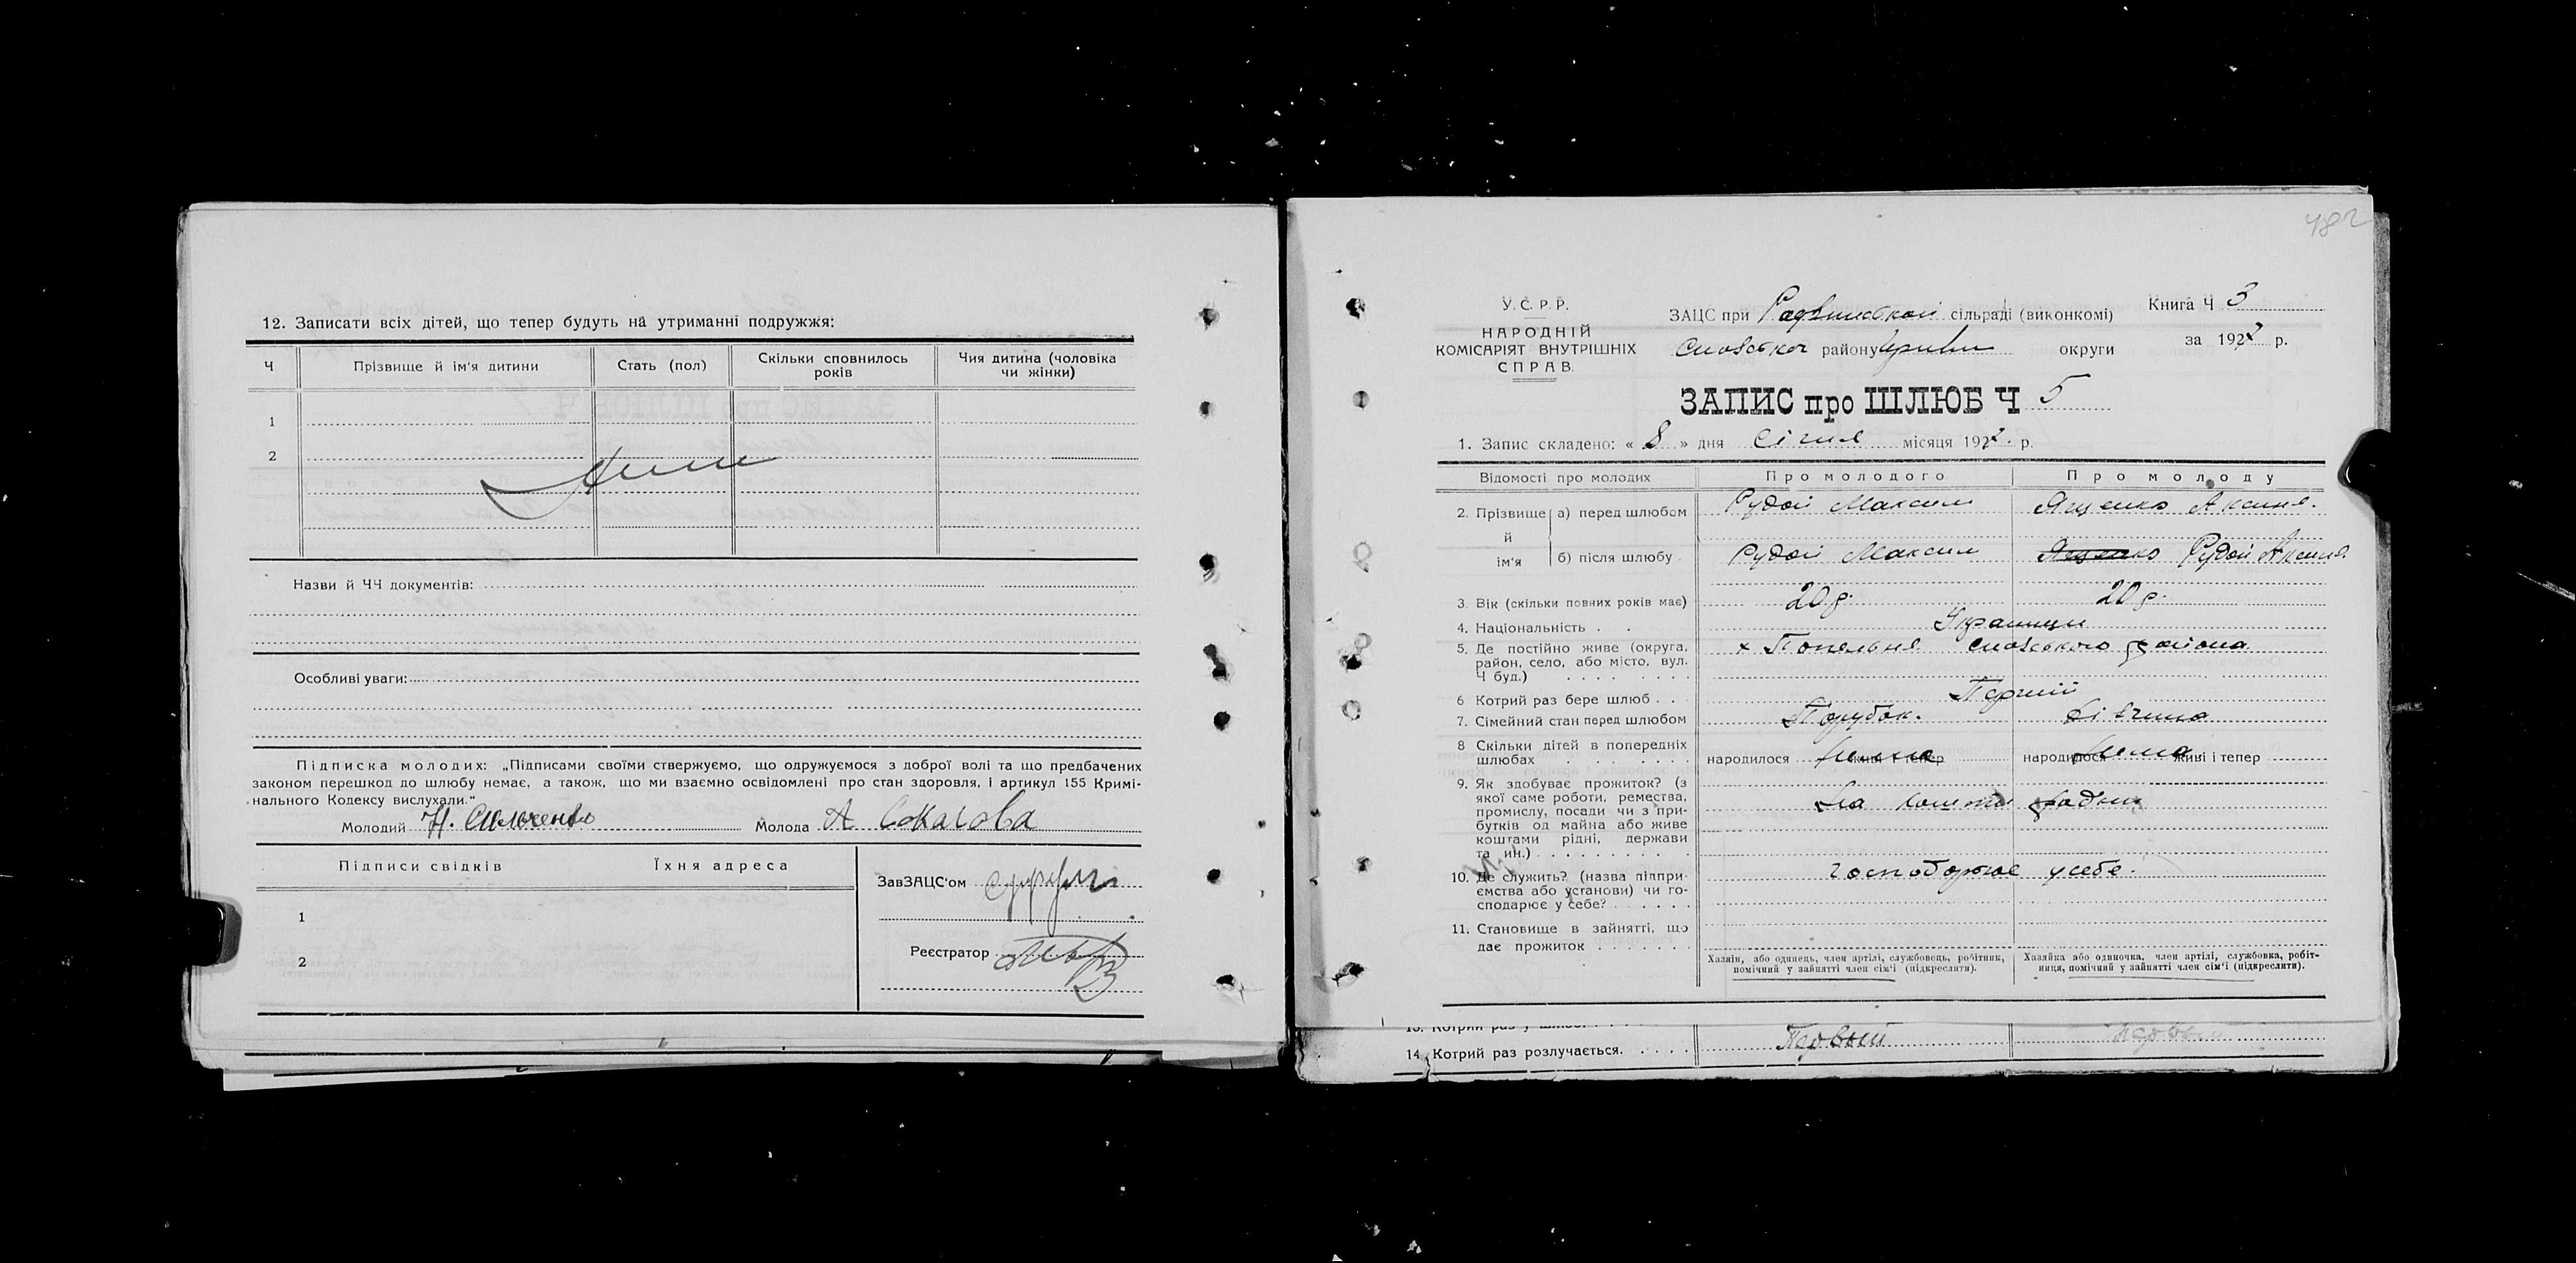 12. Записати всіх дітей, що тепер будуть на утриманні подружжя:
Ч Прізвище й ім'я дитини Стать (пол) Скільки сповнилось років Чия дитина (чоловіка чи жінки)
1
2
Назви й ЧЧ документів:
Особливі уваги:
Підписка молодих: „Підписами своїми ствержуємо, що одружуємося з доброї волі та що предбачених
законом перешкод до шлюбу немає, а також, що ми взаємно освідомлені про стан здоровля, і артикул 155 Кримі-
нального Кодексу вислухали."
Молодий Н. Молода А Соколова
Підписи свідків Їхня адреса
1
2
ЗавЗАЦС'ом
Реєстратор
482
У.С.Р.Р.
НАРОДНІЙ
КОМІСАРІЯТ ВНУТРІШНІХ
СПРАВ.
ЗАЦС при сільраді (виконкомі)
району округи
Книга Ч 3
за 1922 р.
ЗАПИС про ШЛЮБ Ч 5
1. Запис складено: « 8 » дня Січня місяця 1922. р.
Відомості про молодих Про молодого Про молоду
2. Прізвище й ім'я а) перед шлюбом Рудой Максим Ященко Аксиня.
б) після шлюбу Рудой Максим Ященко Рудой Аксиня
3. Вік (скільки повних років має) 20 р. 20 р.
4. Національність . . Українци
5. Де постійно живе (округа,
район, село, або місто, вул.
Ч буд.) х Попельня района
6 Котрий раз бере шлюб . . Перший
7. Сімейний стан перед шлюбом Парубок. Дівчина
8 Скільки дітей в попередніх
шлюбах народилося Нема живі і тепер народилося Нема живі і тепер
9. Як здобуває прожиток? (з
якої саме роботи, ремества,
промислу, посади чи з при-
бутків од майна або живе
коштами рідні, держави
та ин.) На кошти
10. Де служить? (назва підпри-
ємства або установи) чи го-
сподарює у себе? господарює у себе.
11. Становище в зайнятті, що
дає прожиток
Хазяїн, або одинець, член артілі, службовець, робітник,
помічний у зайнятті член сім'ї (підкреслити).
Хазяйка або одиночка, член артілі, службовка, робіт-
ниця, помічний у зайнятті член сім'ї (підкреслити).
14. Котрий раз розлучається. Первый Первый